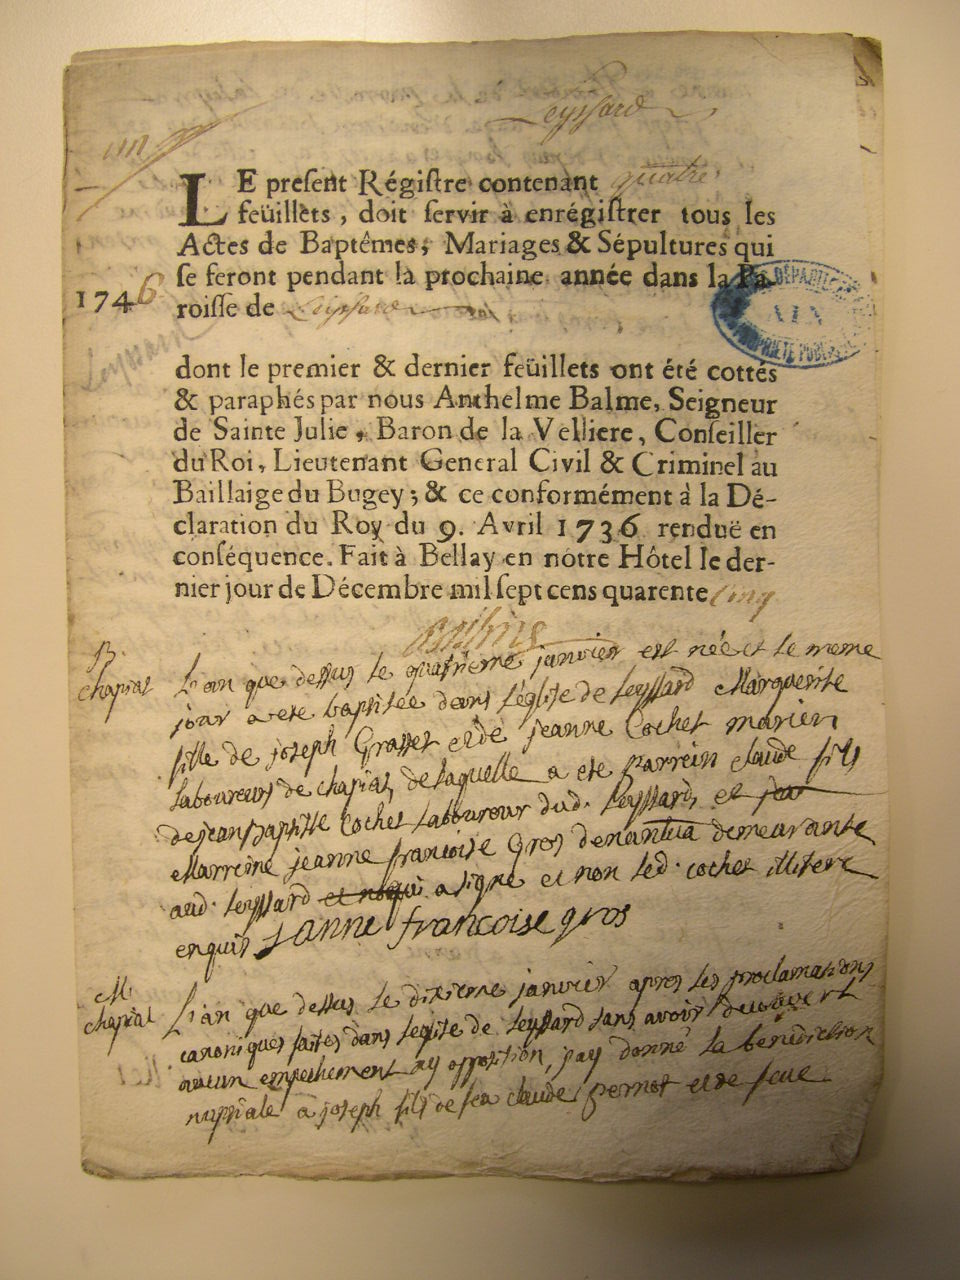 Leyssard
LE present Régistre contenant quatre
feüillets, doit servir à enrégistrer tous les
Actes de Baptêmes, Mariages & Sépultures qui
se feront pendant la prochaine année dans la Pa-
1746 roisse de Leyssard
dont le premier & dernier feüillets ont été cottés
& paraphés par nous Anthelme Balme, Seigneur
de Sainte Julie, Baron de la Velliere, Conseiller
du Roi, Lieutenant General Civil & Criminel au
Baillaige du Bugey; & ce conformément à la Dé-
claration du Roy du 9. Avril 1736 renduë en
conséquence. Fait à Bellay en nôtre Hôtel le der-
nier jour de Décembre mil sept cens quarente cinq
B.
chapiat
L'an que dessus le quatrieme janvier est née et le meme
jour a ete baptisée dans l'église de leyssard Marguerite
fille de joseph Grasset et de jeanne Cochet mariers
laboureurs de chapiat, de laquelle a ete parrein claude fils
de jean baptiste Cochet laboureur dud. leyssard, et
Marreine jeanne francoise Gros de nantua demeurante
aud. leyssard et qui a signe et non led. cochet illitere
enquis Janne francoise gros
M.
chapiat
L'an que dessus le dixieme janvier apres les proclamations
canoniques faites dans leglise de leyssard sans avoir decouvert
aucun empechement ny opposition, jay donné la benediction
nuptiale a joseph fils de feu claude pernot et de feue
DÉPARTE
AIN
PROPRIÉTÉ PUBL